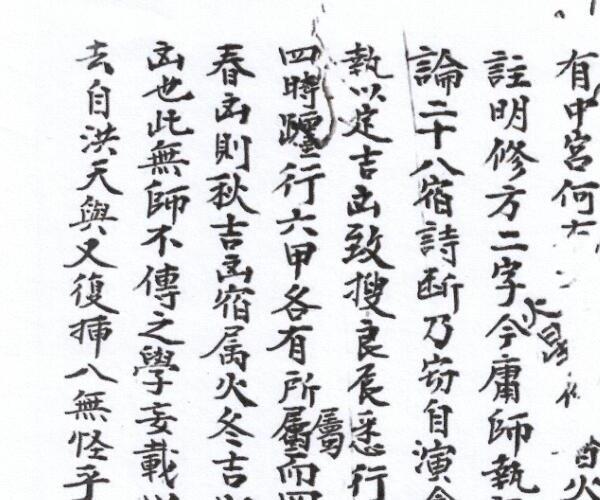 有中宮何
註明修方二字今庸師執
火星
論二十八宿詩断乃窃自演
執以定吉凶致搜良辰悉行
四時躔行六甲各有所屬而四
属
春凶則秋吉凶宿属火冬吉
凶也此無師不傳之學妄載
去自洪天與又復揷八無怪乎